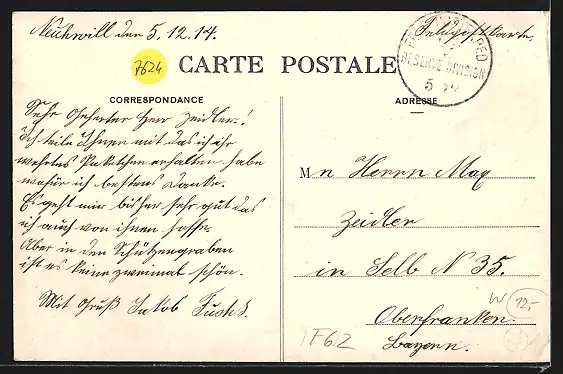 Neuhwill den 5.12.14.
Feldpostkarte.
7624
CARTE POSTALE
RESERVE DIVISION
5 12
CORRESPONDANCE
ADRESSE
Sehr Geherter Herr Zeidler!
Ich teile Ihnen mit das ich ihr
wehrtes Paketchen erhalten habe
wofür ich bestens Danke.
Es geht mir bis her sehr gut das
ich auch von ihnen hoffe.
Aber in den Schützengraben
ist es keine zweimal schön.
Mit Gruß Jakob Fuchs.
M n Herrn Max
Zeidler
in Selb N 35.
Oberfranken
Bayern.
W 12,-
1F62